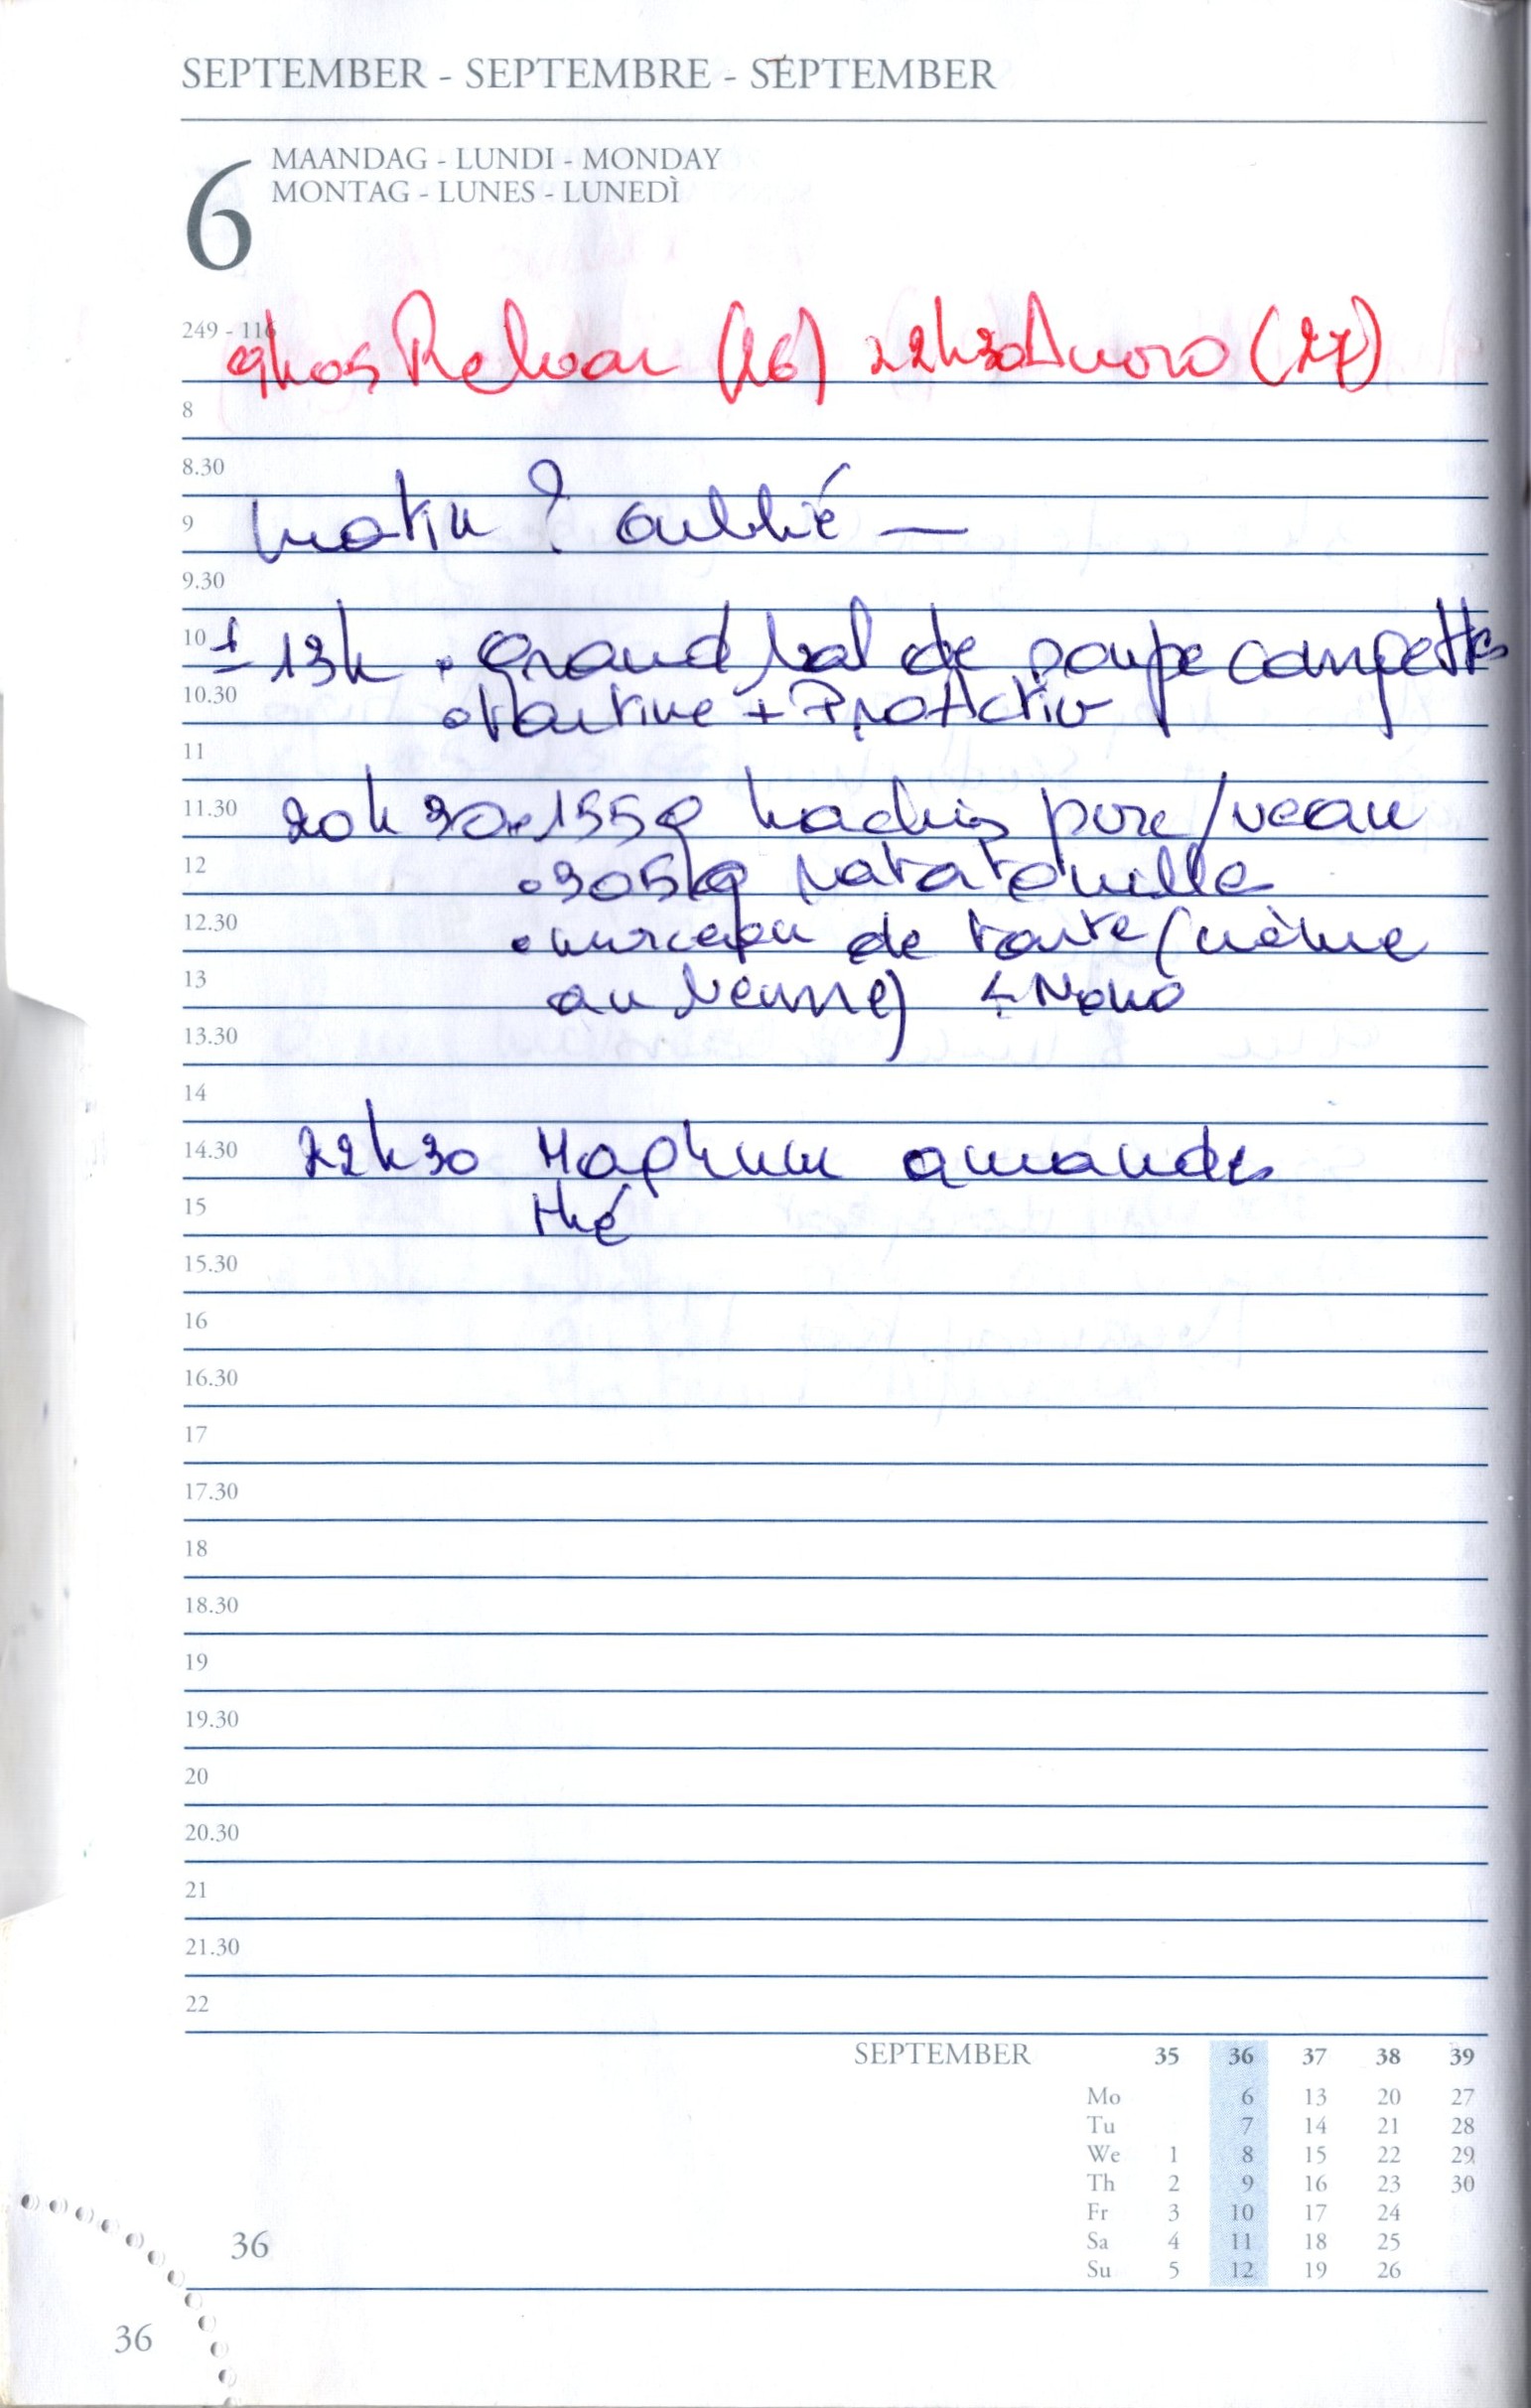 SEPTEMBER - SEPTEMBRE - SEPTEMBER
6
MAANDAG - LUNDI - MONDAY
MONTAG - LUNES - LUNEDÌ
249 - 116
9h05 (26) 22h30 (27)
8
8.30
9 matin ? oublié —
9.30
10 ± 13h • Grand bol de soupe courgettes
10.30 • tartine + ProActiv
11
11.30 20h30 • 155g hachis porc/veau
12 • 305g ratatouille
12.30 • morceau de tarte (crème
13 au beurre)
13.30
14
14.30 22h30 Magnum amandes
15 thé
15.30
16
16.30
17
17.30
18
18.30
19
19.30
20
20.30
21
21.30
22
SEPTEMBER 35 36 37 38 39
Mo 6 13 20 27
Tu 7 14 21 28
We 1 8 15 22 29
Th 2 9 16 23 30
Fr 3 10 17 24
Sa 4 11 18 25
Su 5 12 19 26
36
36